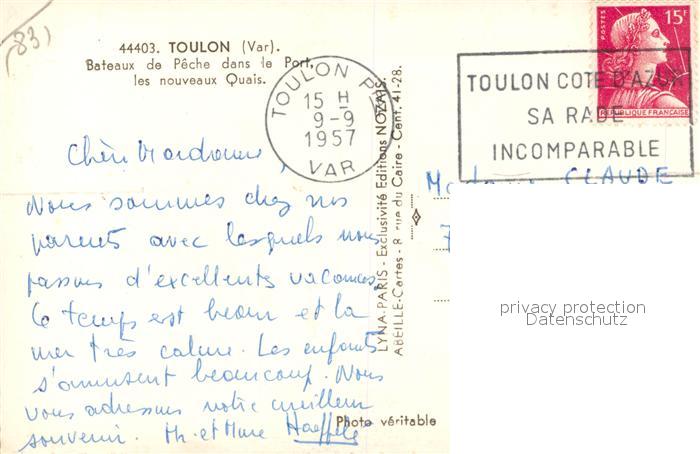 (83)
44403. TOULON (Var).
Bateaux de Pêche dans le Port,
les nouveaux Quais.
TOULON
15 H
9-9
1957
VAR
POSTES
15F
REPUBLIQUE FRANÇAISE
TOULON COTE D'AZUR
SA RADE
INCOMPARABLE
Madame CLAUDE
Chère Mardame,
Nous sommes chez nos
parents avec lesquels nous
passons d'excellents vacances.
Le temps est beau et la
mer très calme. Les enfants
s'amusent beaucoup. Nous
vous adressons notre meilleur
souvenir. Mr. et Mme
LYNA-PARIS - Exclusivité Editions NOZAIS.
ABEILLE-Cartes - 8 rue du Caire - Cent. 41-28.
Photo véritable
privacy protection
Datenschutz